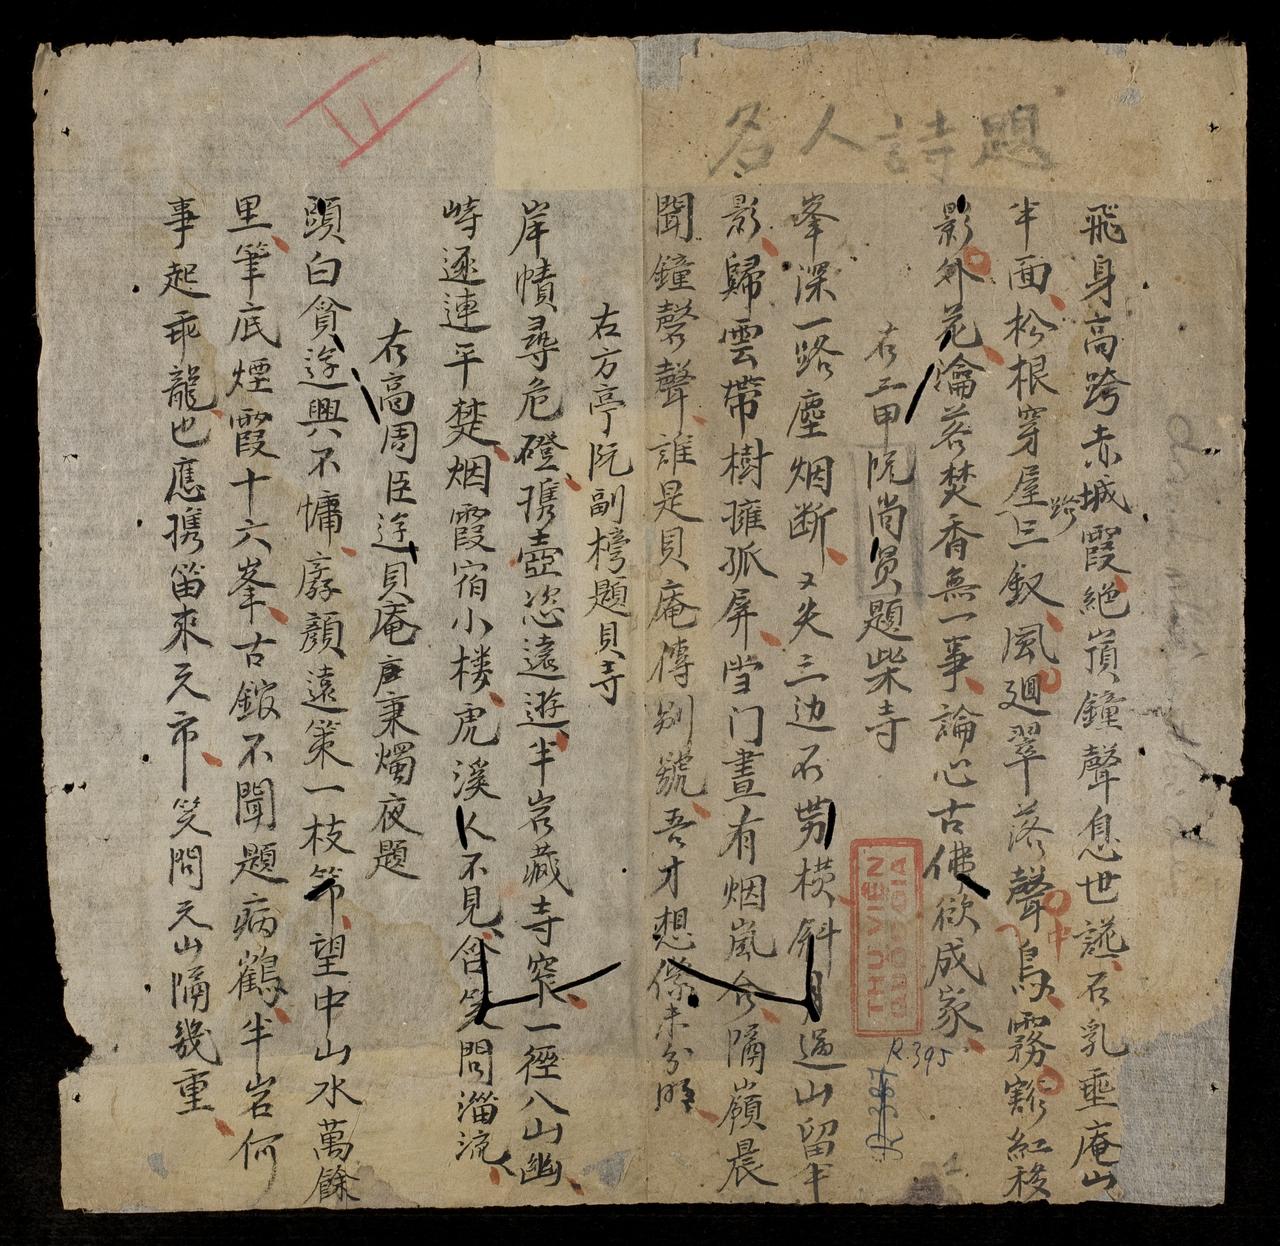 名人詩題
飛身高跨赤城霞絕頂鐘聲息世謊石乳垂庵山
半面松根穿屋三釵風迴翠落聲鳥霧豁紅移
影外花瀹茗焚香無一事論心古佛欲成家
右三甲阮尚員題柴寺
峯深一路塵烟断又失三边石莮橫斜月過山留半
影歸雲帶樹擁孤屏当门晝有烟嵐合隔嶺晨
聞鐘磬聲誰是貝庵傳別號吾才想係未分明
右方亭阮副榜題貝寺
岸幘尋危磴携壺恣遠遊半岩藏寺窄一徑八山幽
峙逐連平楚烟霞宿小楼虎溪人不見含笑問淄流
右高周臣遊貝庵唐秉燭夜題
頭白貪遊興不慵孱顏遠策一枝笻望中山水萬餘
里筆底煙霞十六峯古錧不聞題病鶴半岩何
事起乖龍也應携笛來元市笑問元山隔幾重
跨
中
THU VIEN
R.395